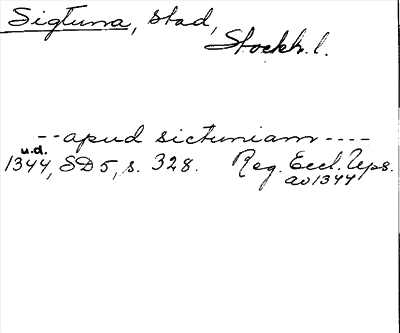 Sigtuna, stad,
Stockh. l.
--apud sictuniam----
u.d.
1344, SD 5, s. 328. Reg. Eccl. Ups.
av 1344